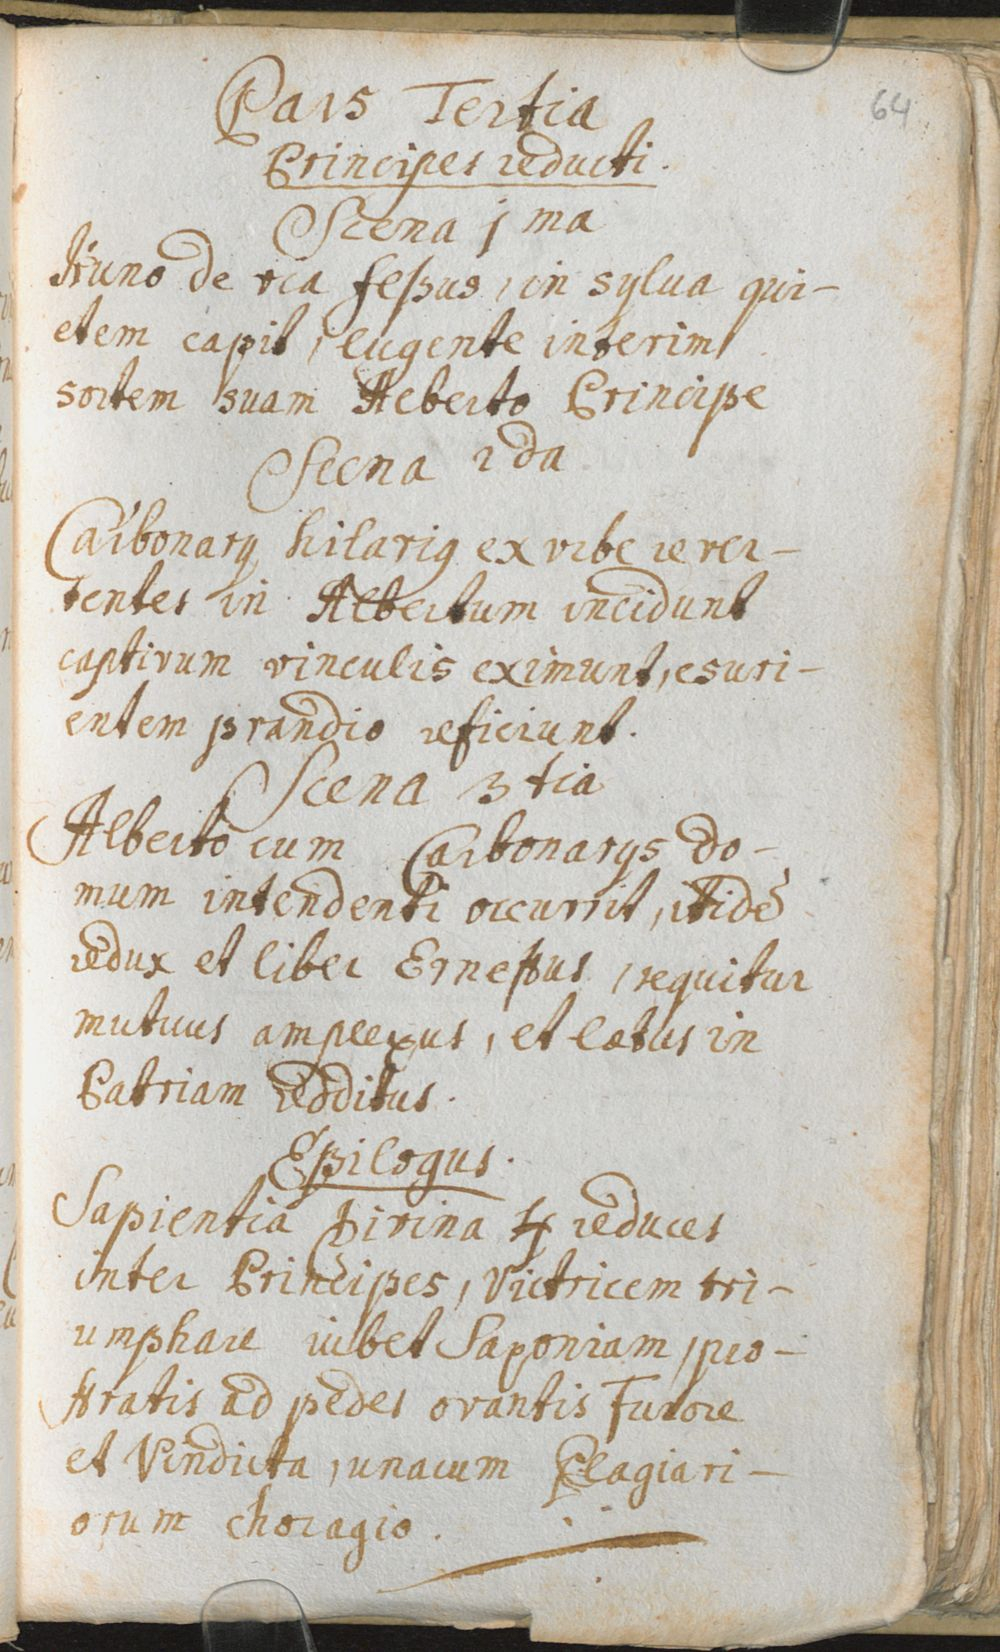 Pars Tertia
64
Principes reducti.
Scena 1ma
Kuno de via fessus, in sylva qui-
etem capit, lugente interim
sortem suam Alberto Principe
Scena 2da
Carbonarij hilarig ex vrbe rever-
tentes in Albertum incidunt
captivum vinculis eximunt, esuri-
entem prandio reficiunt.
Scena 3tia
Alberto cum Carbonarijs do-
mum intendenti occurrit, itidē
redux et liber Ernestus, sequitur
mutuus amplexus, et lætus in
Patriam redditus.
Epilogus.
Sapientia Divina reduces
inter Principes, Victricem tri-
umphare iubet Saxoniam, pro-
stratis ad pedes ovantis Furore
et Vindicta, unacum Plagiari-
orum choragio.